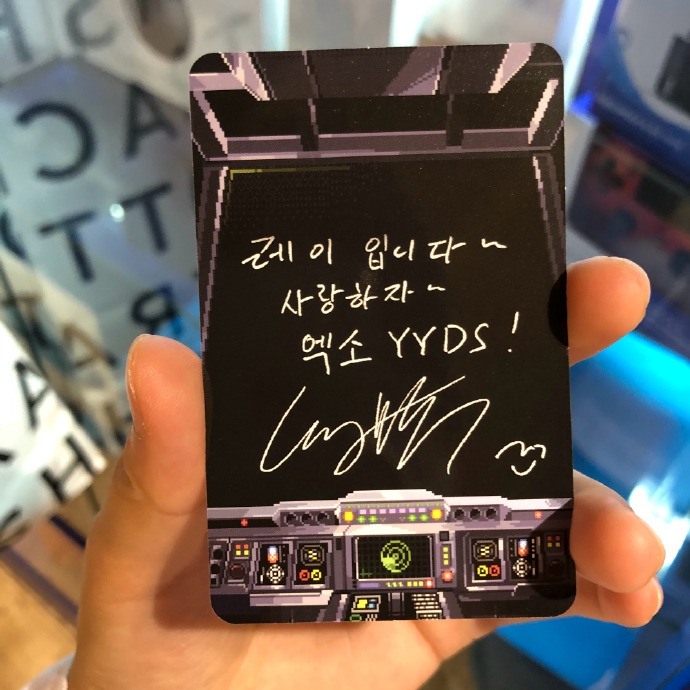 레이 입니다~
사랑하자~
엑소 YYDS!